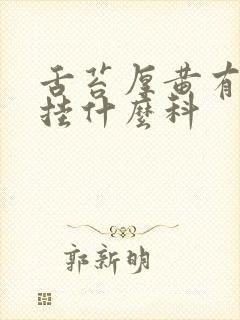 舌苔厚黄有
挂什麽科
郭新明